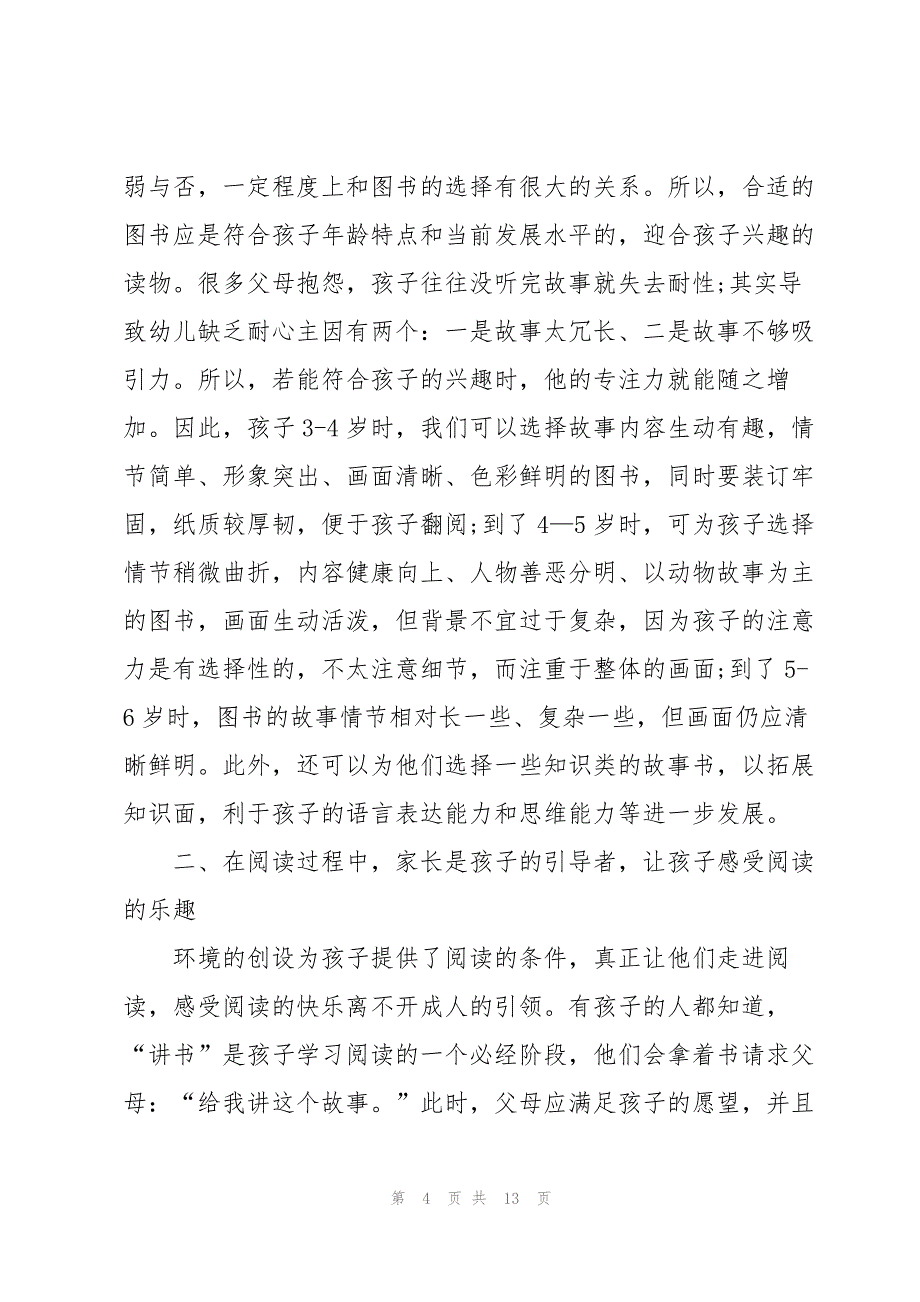 弱与否，一定程度上和图书的选择有很大的关系。所以，合适的
图书应是符合孩子年龄特点和当前发展水平的，迎合孩子兴趣的
读物。很多父母抱怨，孩子往往没听完故事就失去耐性;其实导
致幼儿缺乏耐心主因有两个：一是故事太冗长、二是故事不够吸
引力。所以，若能符合孩子的兴趣时，他的专注力就能随之增
加。因此，孩子3-4岁时，我们可以选择故事内容生动有趣，情
节简单、形象突出、画面清晰、色彩鲜明的图书，同时要装订牢
固，纸质较厚韧，便于孩子翻阅;到了4—5岁时，可为孩子选择
情节稍微曲折，内容健康向上、人物善恶分明、以动物故事为主
的图书，画面生动活泼，但背景不宜过于复杂，因为孩子的注意
力是有选择性的，不太注意细节，而注重于整体的画面;到了5-
6岁时，图书的故事情节相对长一些、复杂一些，但画面仍应清
晰鲜明。此外，还可以为他们选择一些知识类的故事书，以拓展
知识面，利于孩子的语言表达能力和思维能力等进一步发展。
二、在阅读过程中，家长是孩子的引导者，让孩子感受阅读
的乐趣
环境的创设为孩子提供了阅读的条件，真正让他们走进阅
读，感受阅读的快乐离不开成人的引领。有孩子的人都知道，
“讲书”是孩子学习阅读的一个必经阶段，他们会拿着书请求父
母：“给我讲这个故事。”此时，父母应满足孩子的愿望，并且
第 4 页 共 13 页